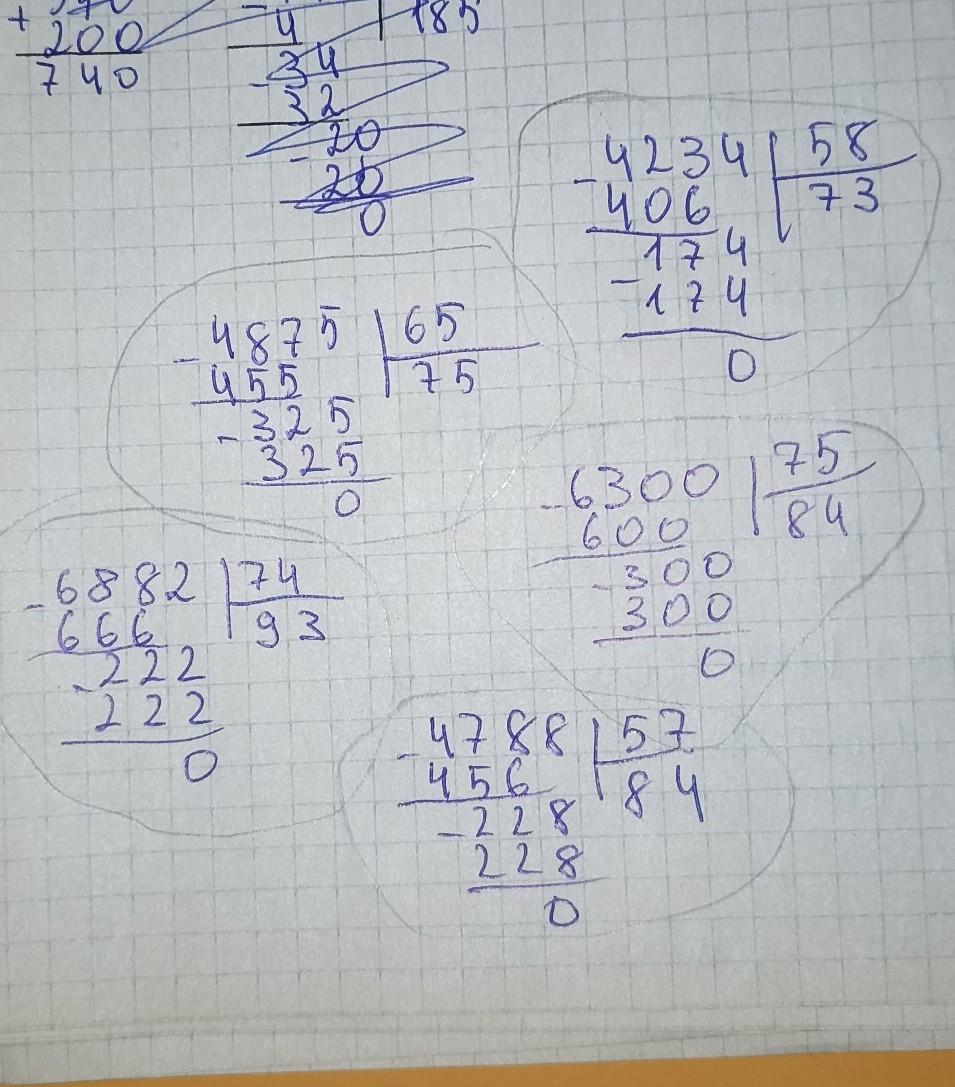 + 200
740
- 4
185
- 34
32
- 20
20
0
- 4234 | 58
406 | 73
- 174
174
0
- 4875 | 65
455 | 75
- 325
325
0
- 6300 | 75
600 | 84
- 300
300
0
- 6882 | 74
666 | 93
- 222
222
0
- 4788 | 57
456 | 84
- 228
228
0